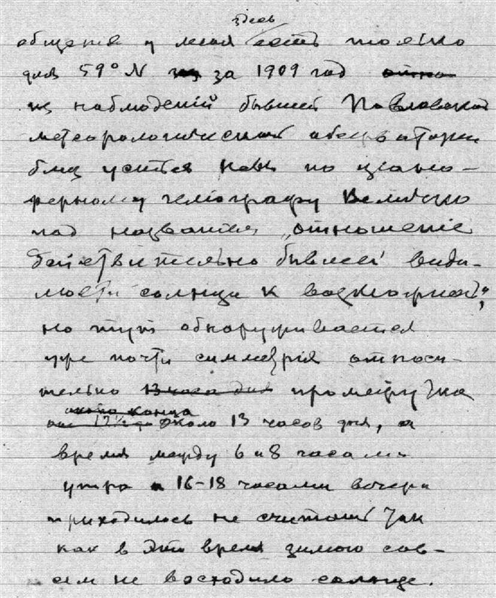 здесь
общения у меня есть только
для 59° N за 1909 год
из наблюдений бывшей Павловской
метеорологической обсерватории
по
ферному гелиографу Величко
под названием „отношение
действительно бывшей види-
мости солнца к возможной“,
но тут обнаруживается
уже почти симметрия относи-
тельно 13 часа дня промежутка
около 13 часов дня, а
время между 6 и 8 часами
утра и 16-18 часами вечера
приходилось не считать так
как в это время зимою сов-
сем не восходило солнце.